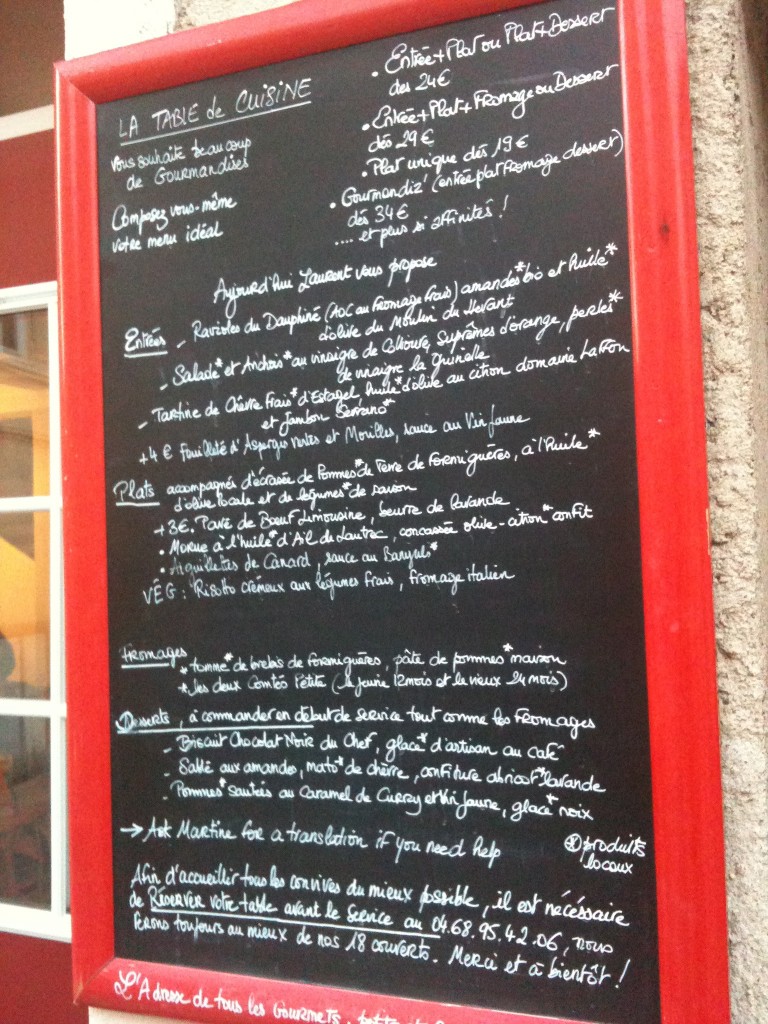 LA TABLE de CUISINE
Vous souhaite beaucoup
de Gourmandises
Composez vous-même
votre menu idéal
• Entrée + Plat ou Plat + Dessert
dès 24€
• Entrée + Plat + Fromage ou Dessert
dès 29€
• Plat unique dès 19€
• Gourmandiz' (entrée plat fromage dessert)
dès 34€
.... et plus si affinités !
Aujourd'hui Laurent vous propose
Entrées - Ravioles du Dauphiné (AOC au Fromage frais) amandes* bio et huile*
d'olive du Moulin du
- Salade* et Anchois* au vinaigre de Collioure, suprêmes d'orange, perles*
de vinaigre la Guinelle
- Tartine de Chèvre Frais* d'Estagel, huile* d'olive au citron domaine Laffon
et Jambon Serrano*
+4€ Feuilleté d'Asperges vertes et Morilles, sauce au Vin jaune
Plats accompagnés d'écrasée de Pommes* de Terre de Formiguères, à l'huile*
d'olive locale et de légumes* de saison
+3€. Pavé de Boeuf Limousine, beurre de lavande
• Morue à l'huile* d'Ail de Lautrec, concassée olive-citron* confit
• Aiguillettes de Canard, sauce au Banyuls*
VÉG : Risotto crémeux aux légumes frais, fromage italien
Fromages
* tomme* de brebis de Formiguères, pâte de pommes* maison
* les deux Comtés Petite (le jeune 12 mois et le vieux 24 mois)
Desserts, à commander en début de service tout comme les Fromages
- Biscuit Chocolat Noir du Chef, glace* d'artisan au café
- Sablé aux amandes, mató* de chèvre, confiture abricot* lavande
- Pommes* sautées au Caramel de Curry et Vin jaune, glace* noix
→ Ask Martine for a translation if you need help
(*) produits
locaux
Afin d'accueillir tous les convives du mieux possible, il est nécéssaire
de RÉSERVER votre table avant le service au 04.68.95.42.06, nous
ferons toujours au mieux de nos 18 couverts. Merci et à bientôt !
L'Adresse de tous les Gourmets,